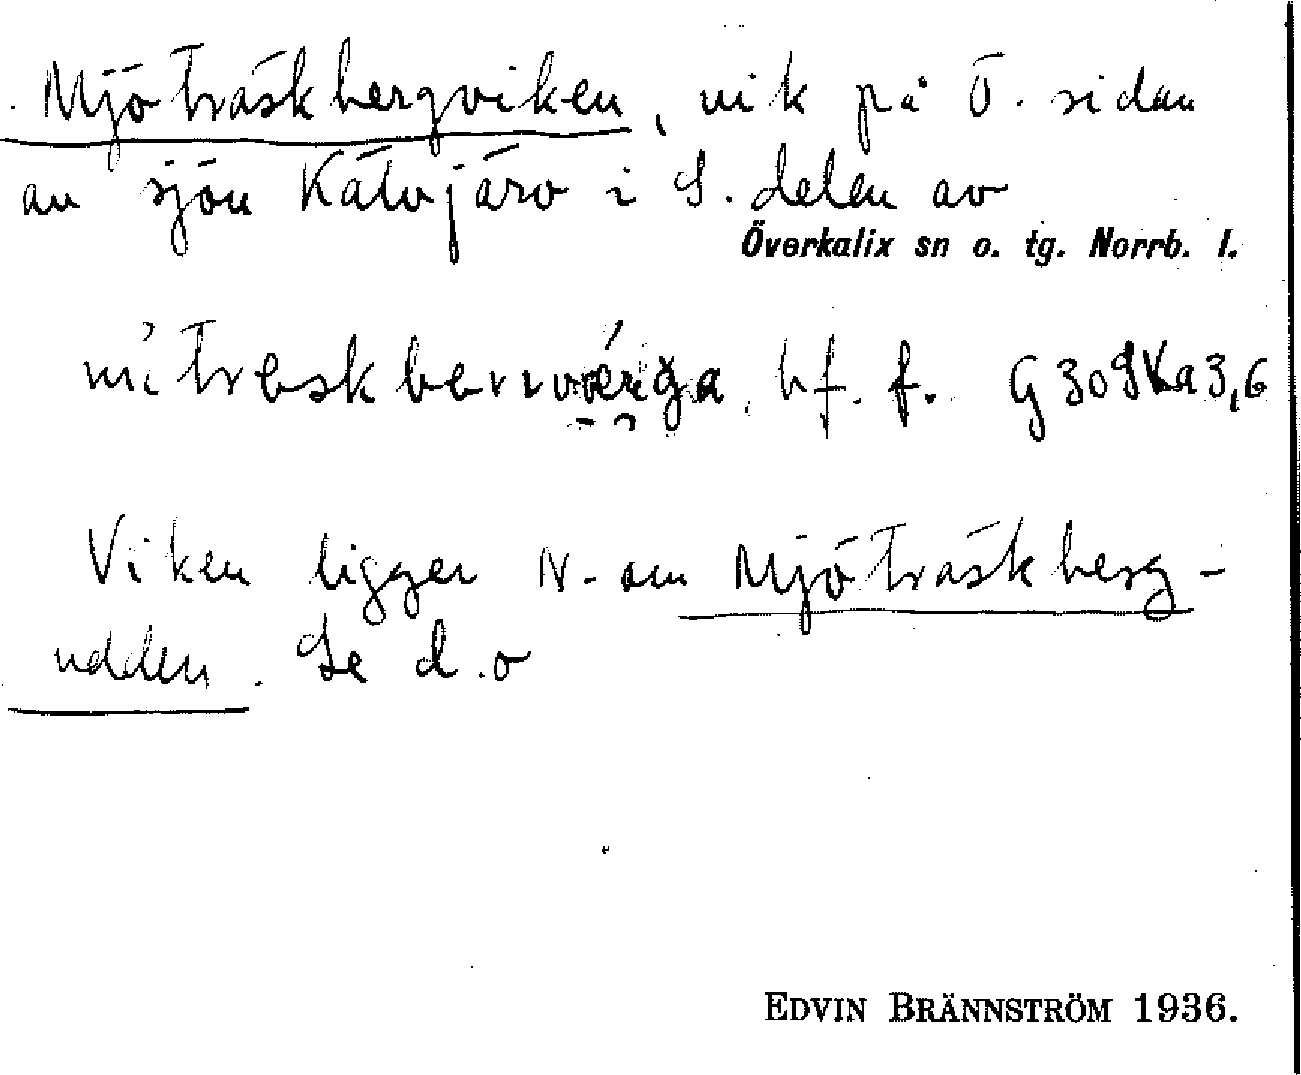 Mjöträskbergviken, vik på Ö. sidan
av sjön Kätvjärv i S. delen av
Överkalix sn o. tg. Norrb. l.
bf. f. G309Ka3,6
Viken ligger N-om Mjöträskberg-
udden. Se d.o
EDVIN BRÄNNSTRÖM 1936.